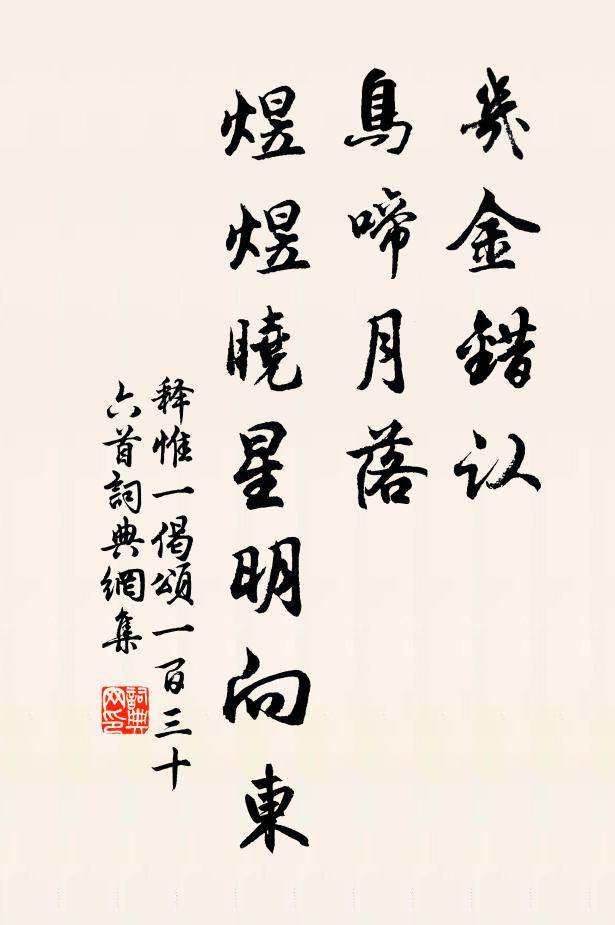 幾金錯认
鳥啼月落
煜煜曉星明向東
释惟一偈頌一百三十
六首詞典網集
詞典
网印